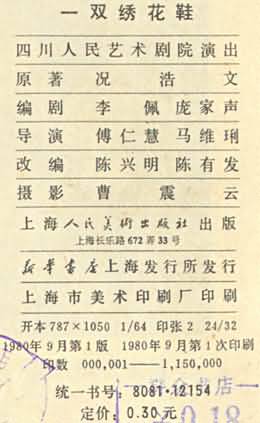 一双绣花鞋
四川人民艺术剧院演出
原著 况浩文
编剧 李佩 庞家声
导演 傅仁慧 马维琍
改编 陈兴明 陈有发
摄影 曹震云
上海人民美術出版社出版
上海长乐路672弄33号
新华書店上海发行所发行
上海市美术印刷厂印刷
开本787×1050 1/64 印张2 24/32
1980年9月第1版 1980年9月第1次印刷
印数 000,001——1,150,000
统一书号:8081·12154
定价:0.30元